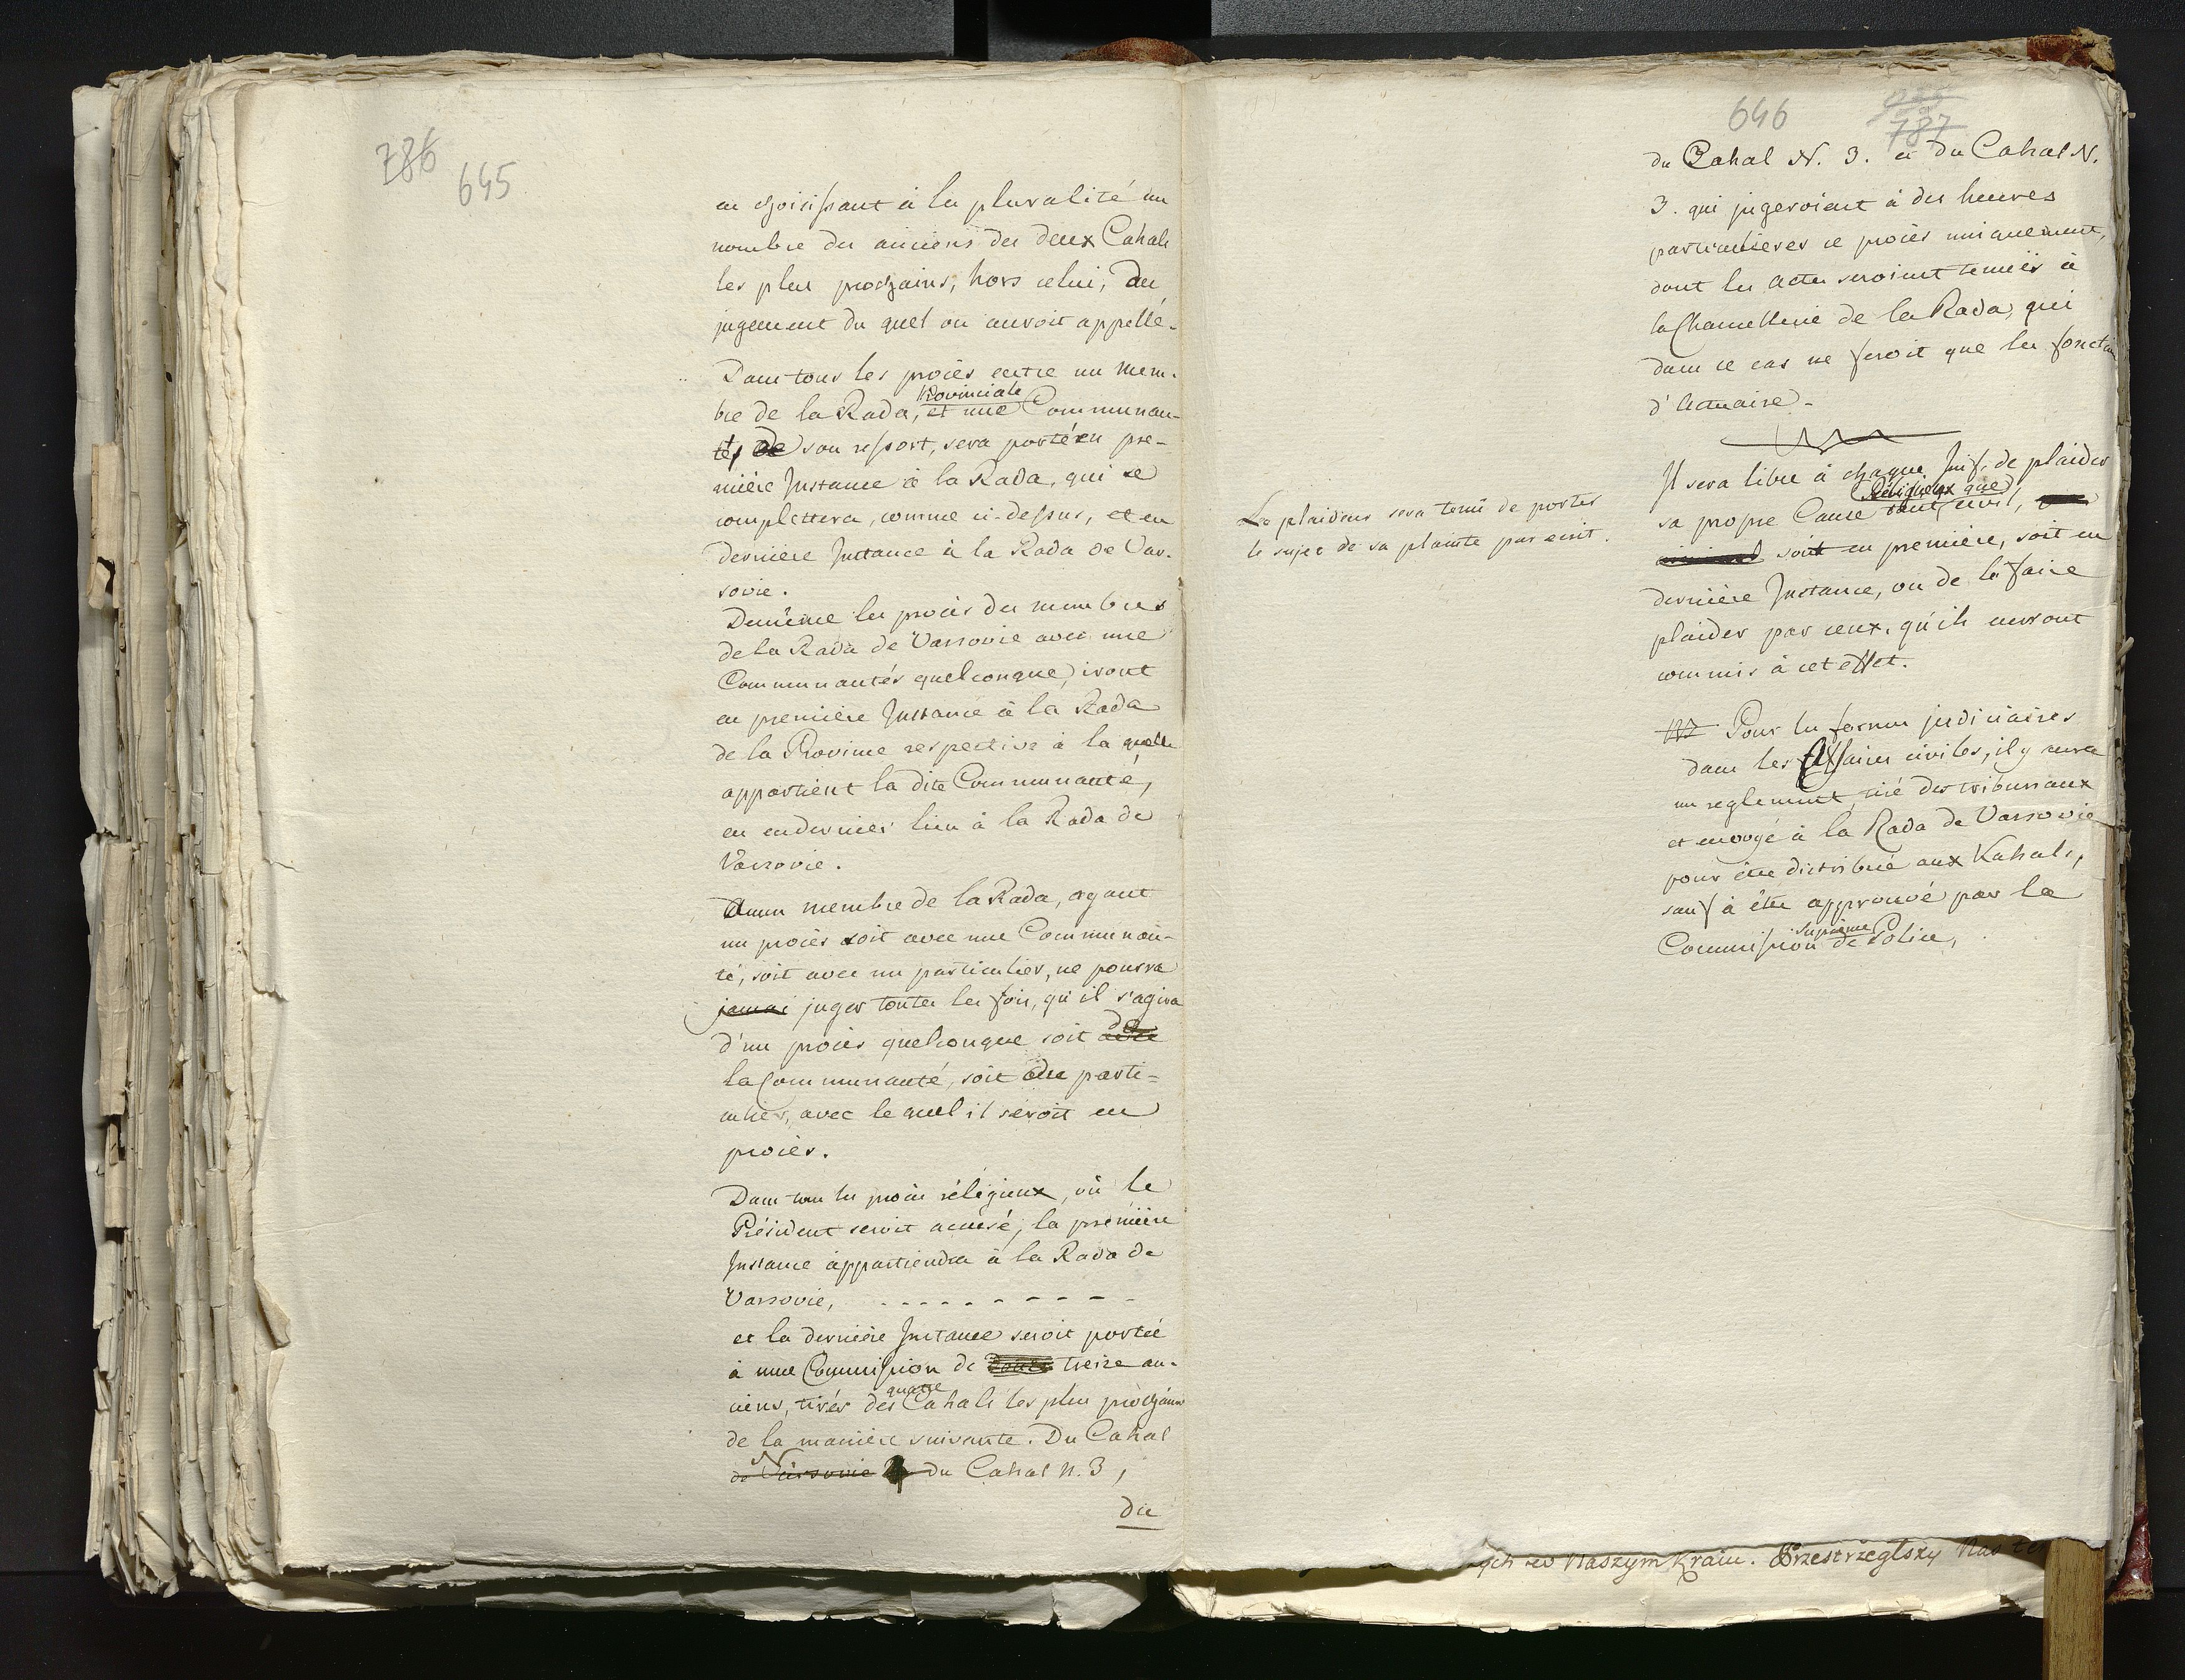 786
645
en choisissant à la pluralité un
nombre des anciens des deux Cahals
les plus prochains, hors celui, du
jugement du quel on auroit appellé.
Dans tous les procès entre un mem-
bre de la Rada, Provinciale et une Communau-
té, de son ressort, sera porté en pre-
mière Instance à la Rada, qui se
complettera, comme ci-dessus, et en
dernière Instance à la Rada de Var-
sovie.
Demême les procès des membres
de la Rada de Varsovie avec une
Communautés quelconque, iront
en première Instance à la Rada
de la Province respective à la quelle
appartient la dite Communauté,
en en dernier lieu à la Rada de
Varsovie.
Aucun membre de la Rada, ayant
un procès soit avec une Communau-
té, soit avec un particulier, ne pourra
jamai juger toutes les fois, qu'il s'agira
d'un procès quelconque soit de
la Communauté, soit du parti-
culier, avec le quel il seroit en
procès.
Dans tous les procès réligieux, où le
Président seroit accusé, la première
Instance appartiendra à la Rada de
Varsovie, - - - - - - - - -
et la dernière Instance seroit portée
à une Commission de treize an-
ciens, tirés des quatre Cahals les plus prochains
de la manière suivante. Du Cahal
de Varsovie N du Cahal N. 3,
du
646
787
du Cahal N. 3. et du Cahal N.
3. qui jugeroient à des heures
particulieres ce procès uniquement,
dont les actes seroient tenuës à
la Chancellerie de la Rada, qui
dans ce cas ne feroit que les fonction
d'Actuaire.
Il sera libre à chaque Juif, de plaider
sa propre Cause tant Réligieux que civil,
soit en première, soit en
dernière Instance, ou de la faire
plaider par ceux, qu'ils auront
commis à cet effet.
Le plaideur sera tenu de porter
le sujet de sa plainte par ecrit.
Pour les formes judiciaires
dans les Affaires civiles, il y aura
un reglement, tiré des tribunaux
et envoyé à la Rada de Varsovie
pour être distribué aux Kahals,
sauf à être approuvé par la
Commission suprème de Police,
ych w Naszym Kraiu. Przestrzegłszy Nas